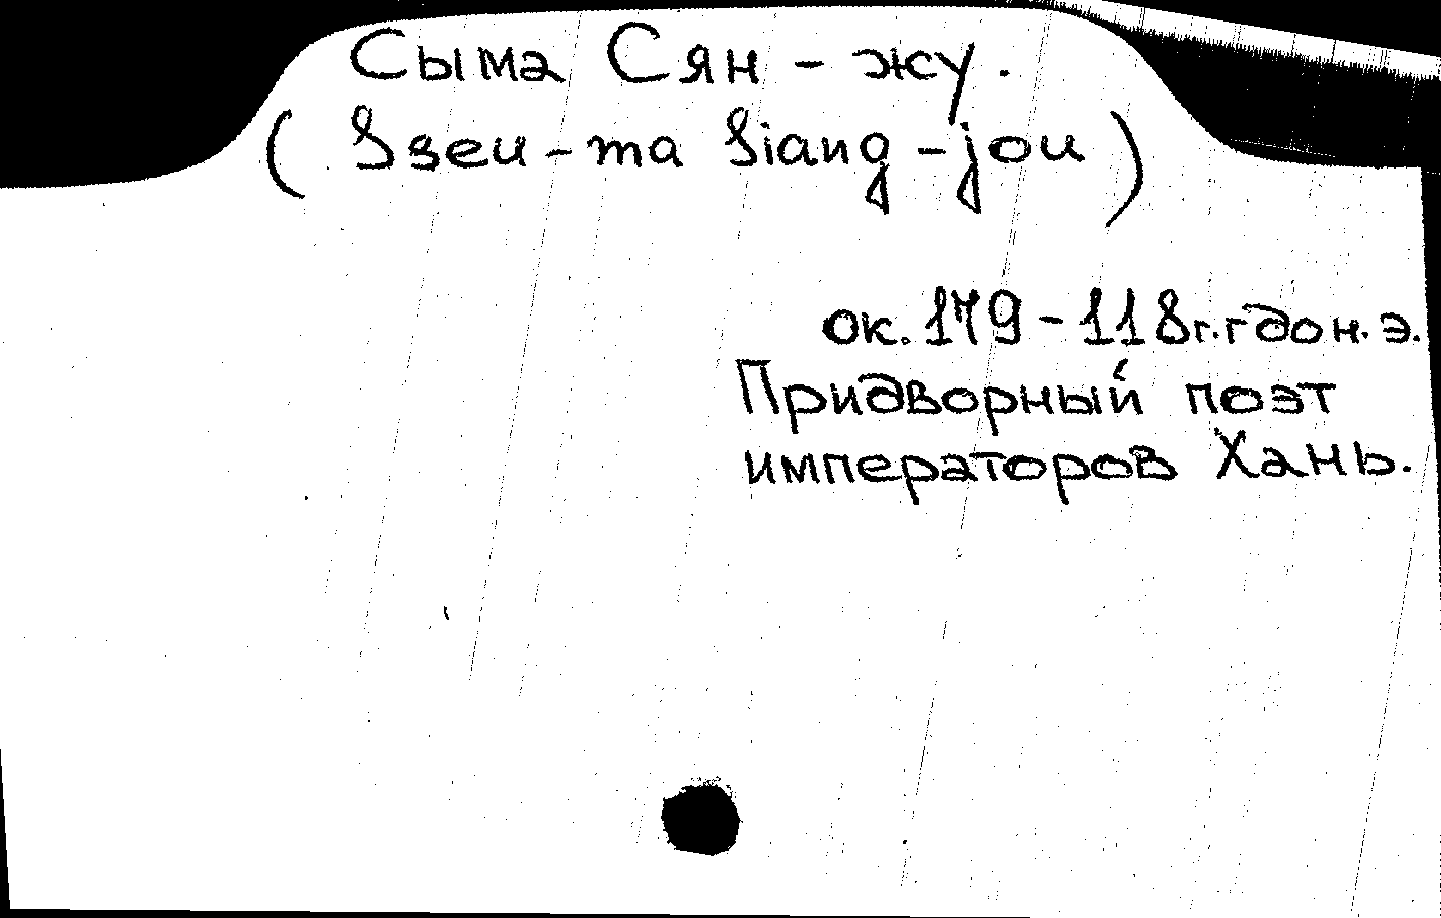 Сыма Сян-жу.
(Sseu-ma Siang-jou)
ок. 179-118г.г до н.э.
Придворный поэт
императоров Хань.